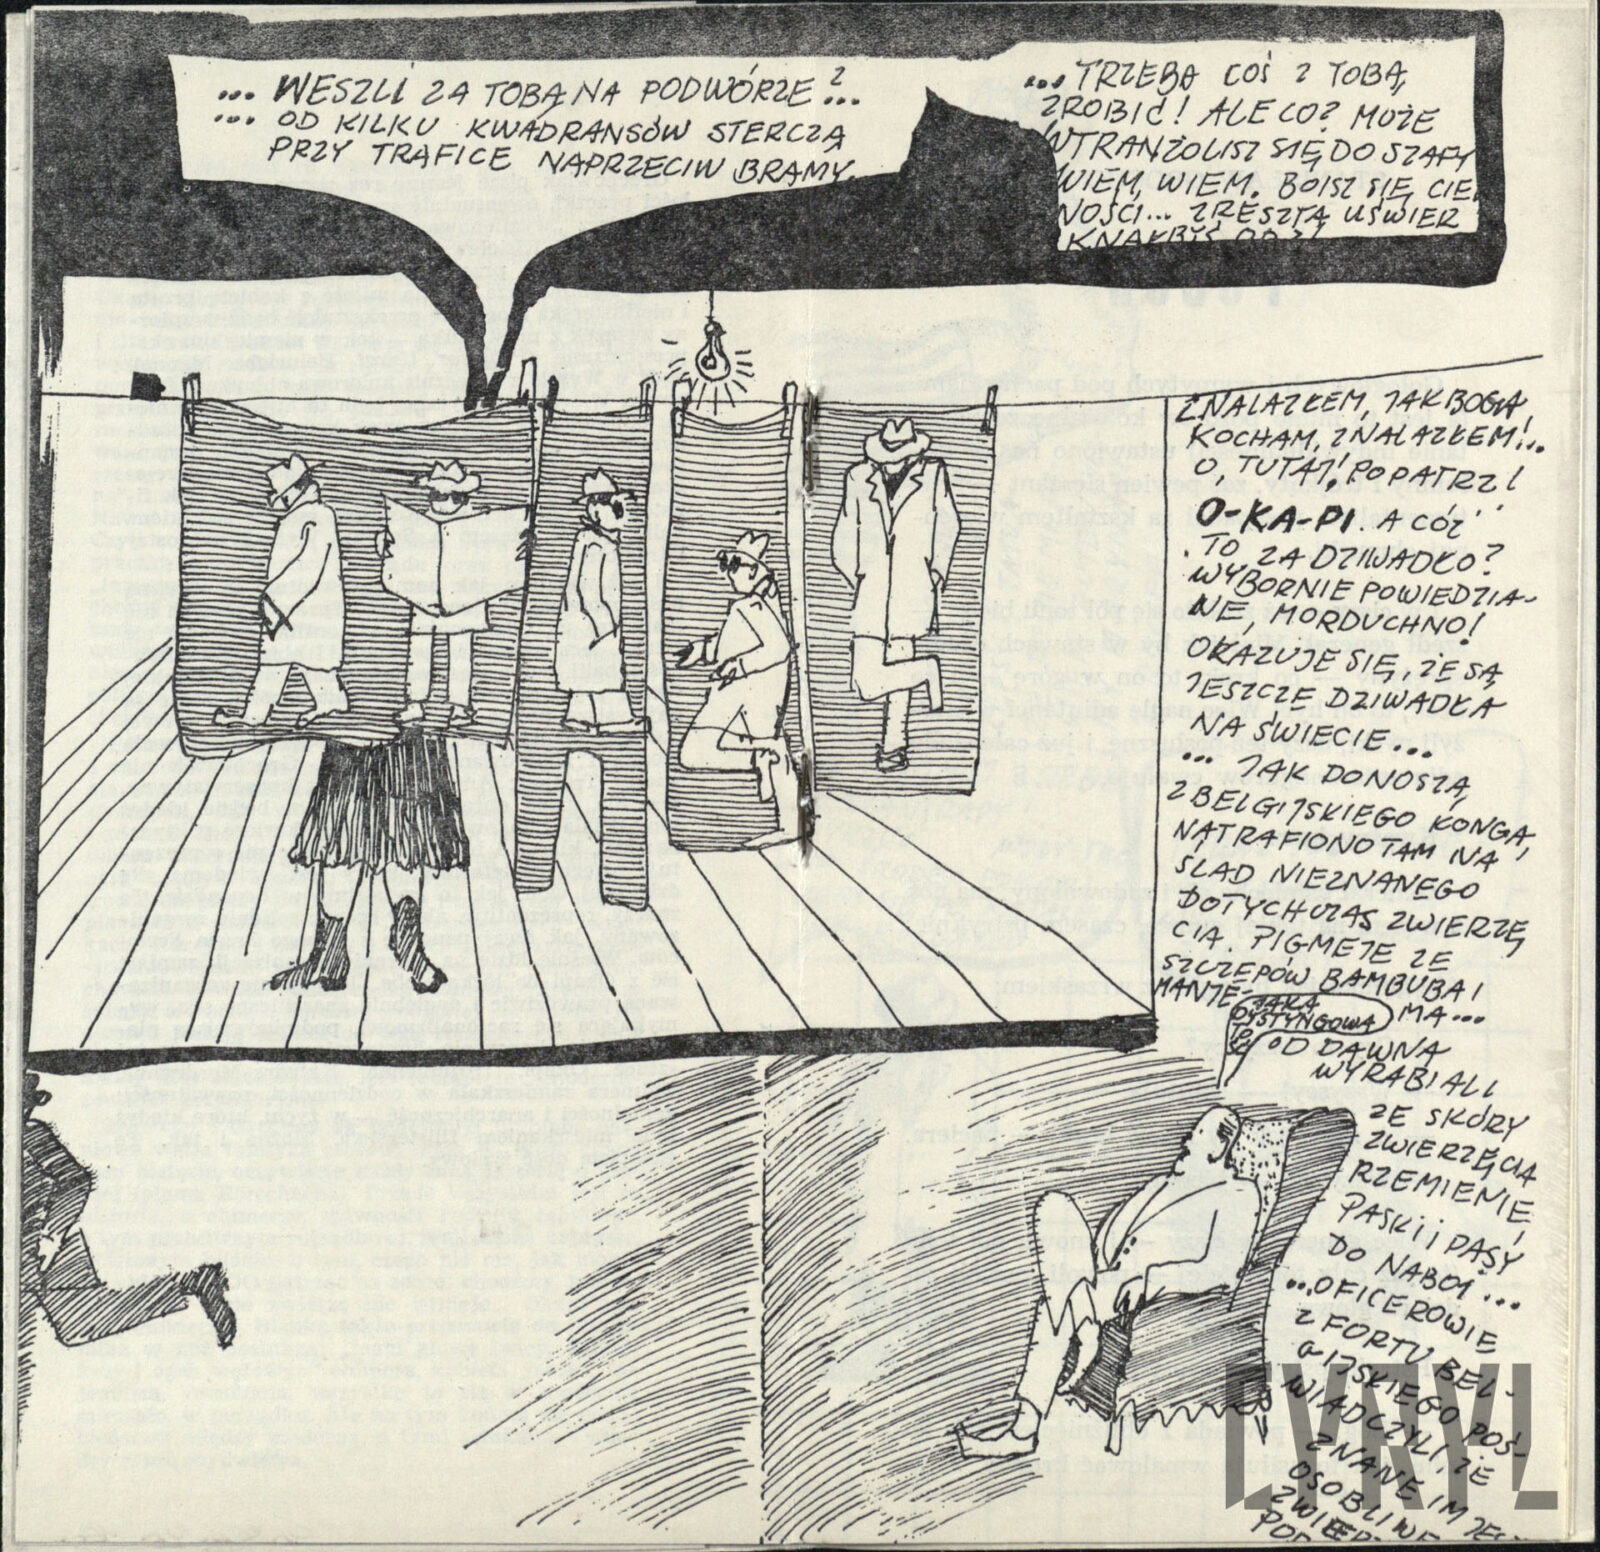 ... WESZLI ZA TOBĄ NA PODWÓRZE?...
... OD KILKU KWADRANSÓW STERCZĄ
PRZY TRAFICE NAPRZECIW BRAMY.
... TRZEBA COŚ Z TOBĄ
ZROBIĆ! ALE CO? MOŻE
WTRANŻOLISZ SIĘ DO SZAFY
WIEM, WIEM. BOISZ SIĘ CIE
NOŚCI... ZRESZTĄ UŚWIER
KNĄŁBYŚ OD
ZNALAZŁEM, JAK BOGA
KOCHAM, ZNALAZŁEM!...
O TUTAJ! POPATRZ!
O-KA-PI. A CÓŻ
TO ZA DZIWADŁO?
WYBORNIE POWIEDZIA-
NE, MORDUCHNO!
OKAZUJE SIĘ, ŻE SĄ
JESZCZE DZIWADŁA
NA ŚWIECIE...
... JAK DONOSZĄ
Z BELGIJSKIEGO KONGA,
NATRAFIONO TAM NA
ŚLAD NIEZNANEGO
DOTYCHCZAS ZWIERZĘ
CIA. PIGMEJE ZE
SZCZEPÓW BAMBUBA I
MAMA...
JAKA
DYSTYNGOWA
OD DAWNA
WYRABIALI
ZE SKÓRY
ZWIERZĘCIA
RZEMIENIE,
PASKI i PASY
DO NABOI...
...OFICEROWIE
Z FORTU BEL-
GIJSKIEGO POŚ-
WIADCZYLI, ŻE
ZNANE IM JEST
OSOBLIWE
CYRYL